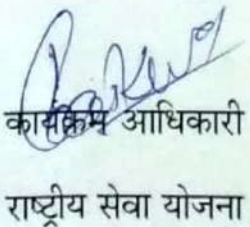 कार्यक्रम आधिकारी
राष्ट्रीय सेवा योजना